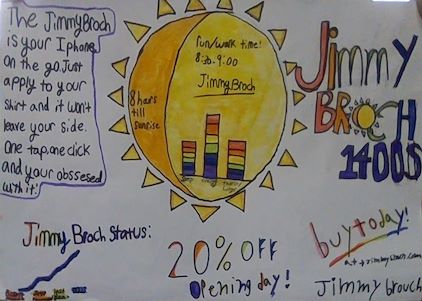 The JimmyBroch
is your Iphone
on the go. Just
apply to your
shirt and it won't
leave your side.
One tap, one click
and your obssesed
with it!
fun/work time!
8:30-9:00
JimmyBroch
8 hours
till
sunrise
JimmY
BROCH
1400$
Jimmy Broch Status:
20% OFF
opening day!
buy today!
Jimmy brouch